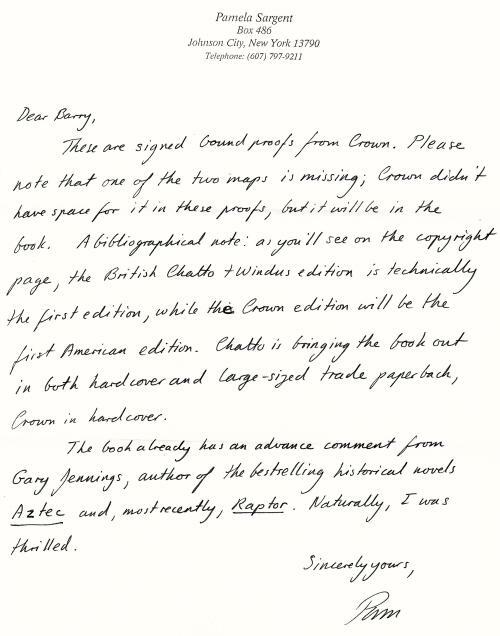 Pamela Sargent
Box 486
Johnson City, New York 13790
Telephone: (607) 797-9211
Dear Barry,
These are signed bound proofs from Crown. Please
note that one of the two maps is missing; Crown didn't
have space for it in these proofs, but it will be in the
book. A bibliographical note: as you'll see on the copyright
page, the British Chatto + Windus edition is technically
the first edition, while the Crown edition will be the
first American edition. Chatto is bringing the book out
in both hardcover and large-sized trade paperback,
Crown in hardcover.
The book already has an advance comment from
Gary Jennings, author of the bestselling historical novels
Aztec and, most recently, Raptor. Naturally, I was
thrilled.
Sincerely yours,
Pam